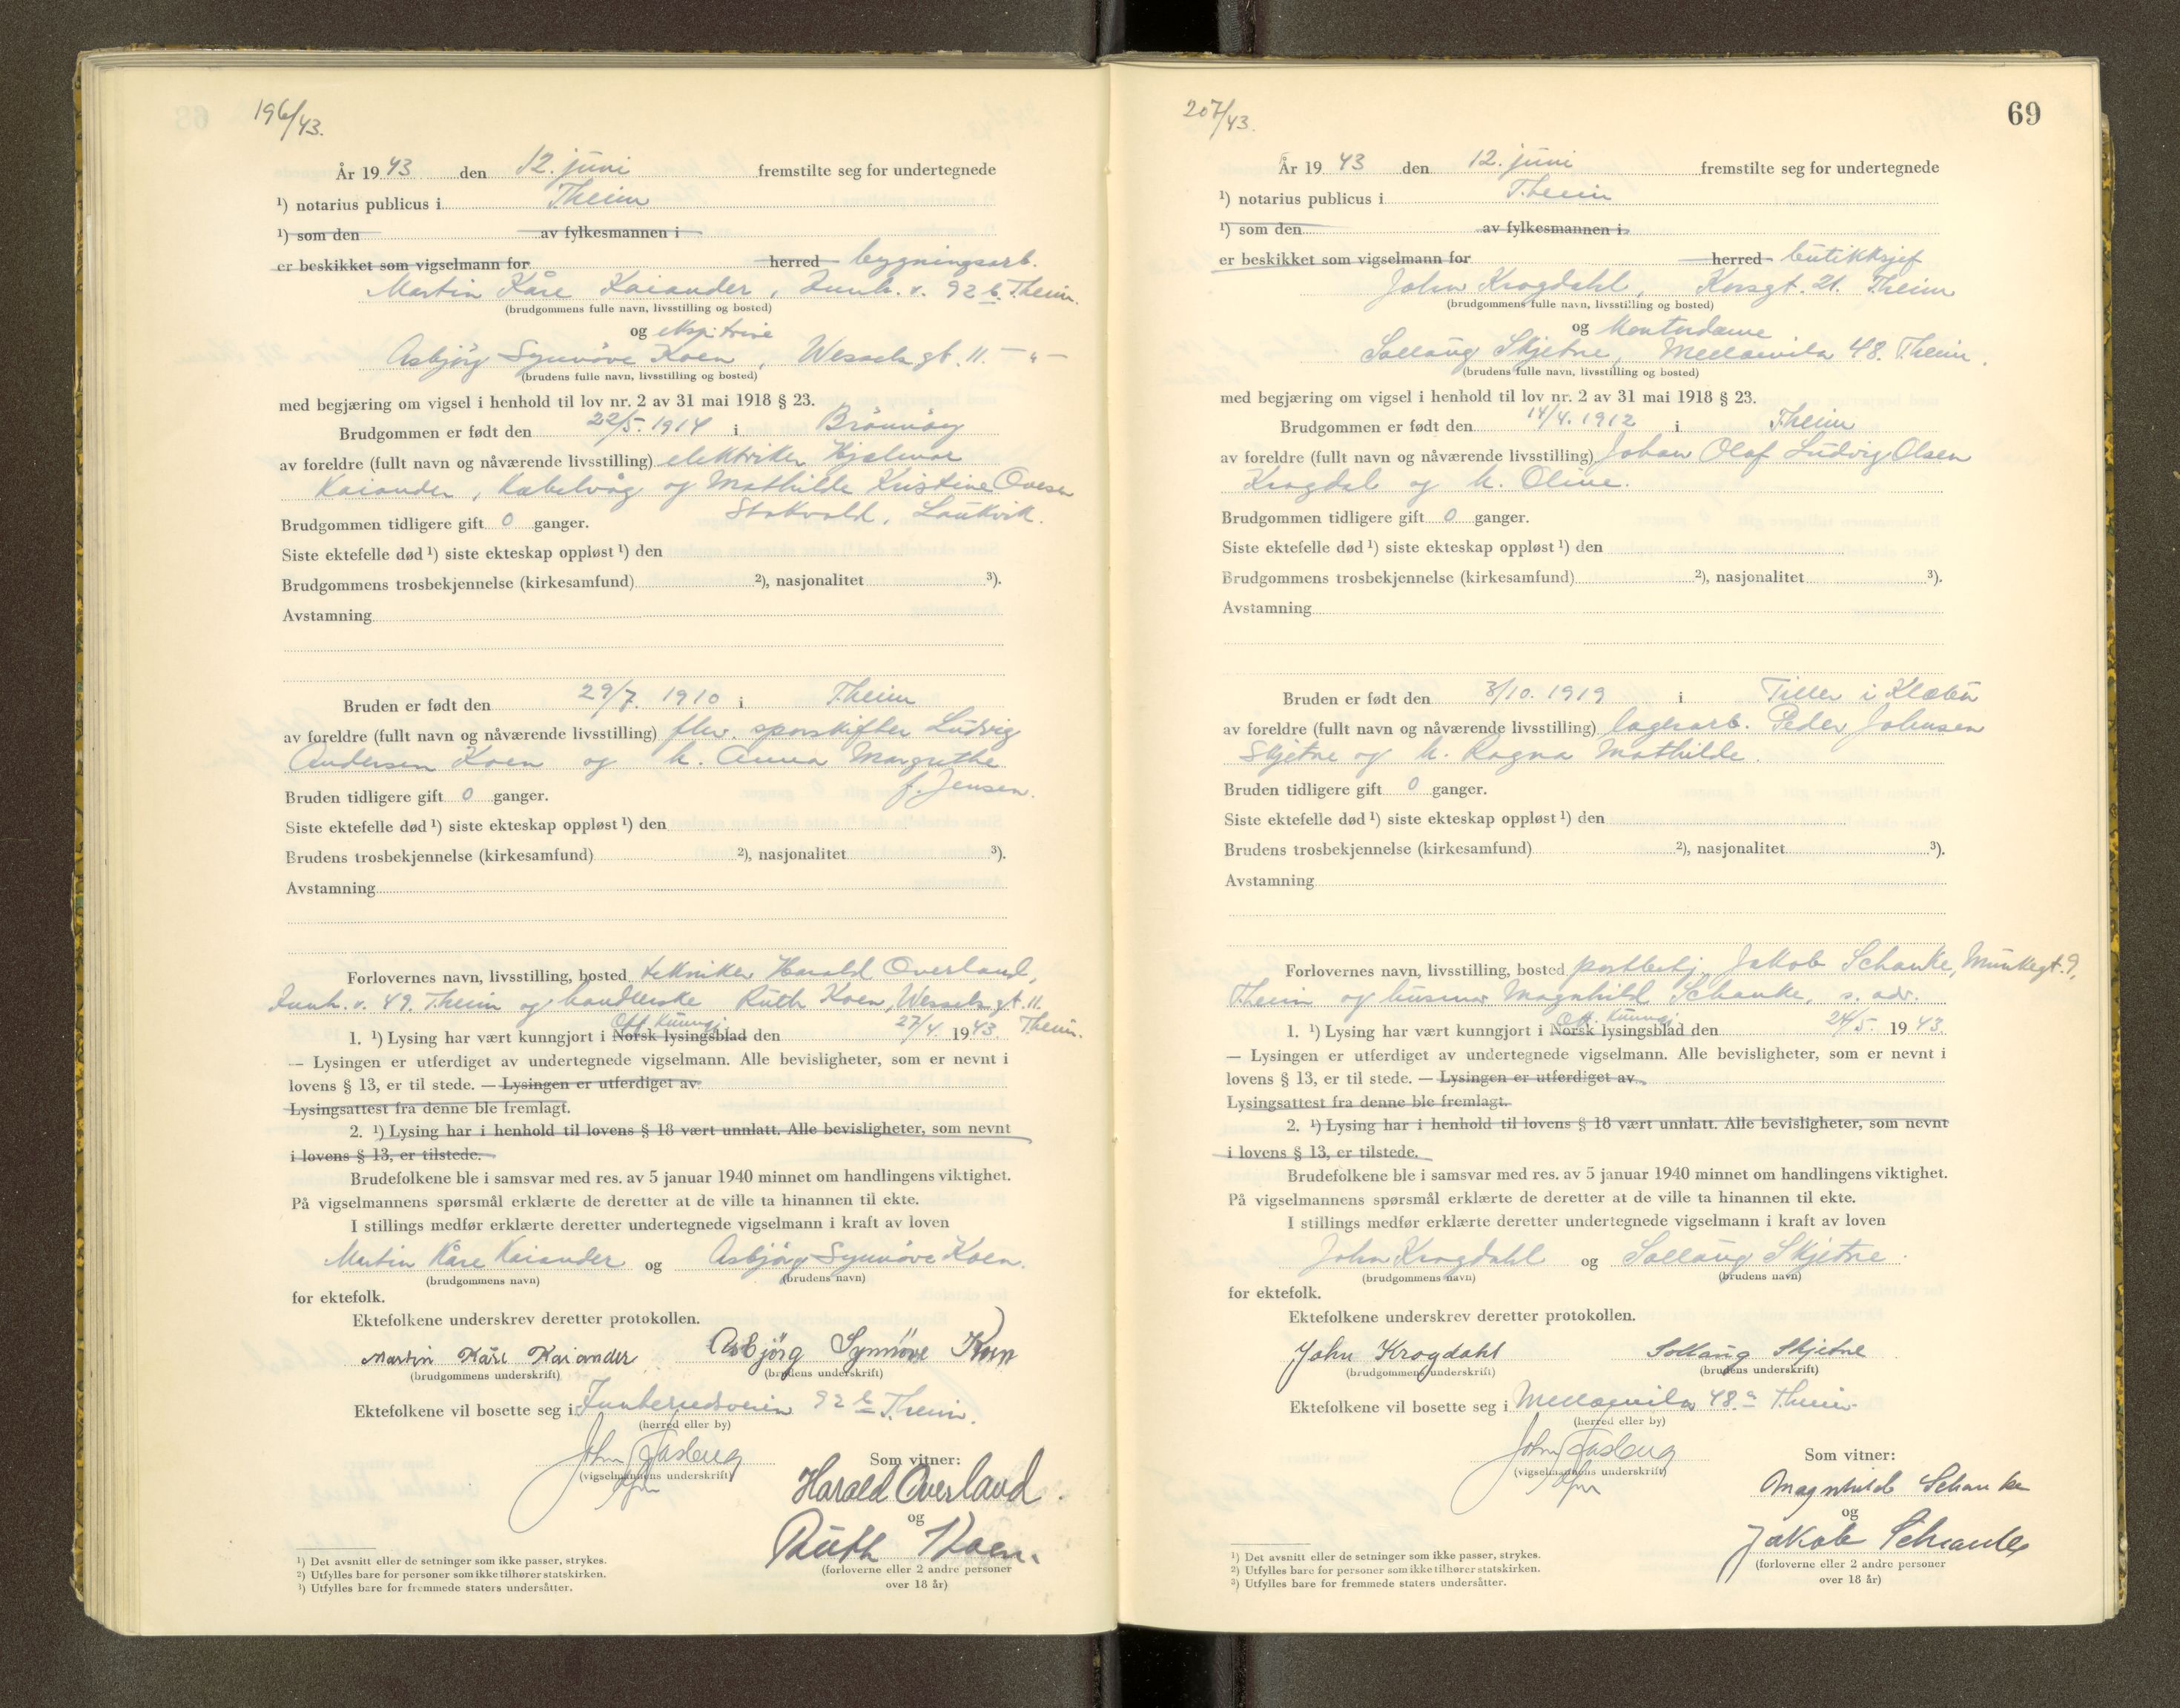 196/43.
År 19 43 den 12. juni fremstilte seg for undertegnede
¹) notarius publicus i Theim
¹) som den av fylkesmannen i
er beskikket som vigselmann for herred bygningsarb.
Martin Kåre Kaiander, Innh. v. 92 b. Theim.
(brudgommens fulle navn, livsstilling og bosted)
og eksp.trise
Asbjörg Synnöve Koen, Wessels gt. 11. — " —
(brudens fulle navn, livsstilling og bosted)
med begjæring om vigsel i henhold til lov nr. 2 av 31 mai 1918 § 23.
Brudgommen er født den 22/5. 1914 i Brönnöy
av foreldre (fullt navn og nåværende livsstilling) elektriker Hjalmar
Kaiander, Kabelvåg og Mathilde Kristine Ovesen
Stokvold, Laukvik.
Brudgommen tidligere gift 0 ganger.
Siste ektefelle død ¹) siste ekteskap oppløst ¹) den
Brudgommens trosbekjennelse (kirkesamfund) ²), nasjonalitet ³).
Avstamning
Bruden er født den 29/7. 1910 i Theim
av foreldre (fullt navn og nåværende livsstilling) fhv. sporskifter Ludvig
Andersen Koen og h. Anna Margrethe
f. Jensen.
Bruden tidligere gift 0 ganger.
Siste ektefelle død ¹) siste ekteskap oppløst ¹) den
Brudens trosbekjennelse (kirkesamfund) ²), nasjonalitet ³).
Avstamning
Forlovernes navn, livsstilling, bosted tekniker Harald Overland,
Innh. v. 49. Theim og handlerske Ruth Koen, Wessels gt. 11.
Theim.
Off. Kunngj.
1. ¹) Lysing har vært kunngjort i Norsk lysingsblad den 27/4. 1943.
— Lysingen er utferdiget av undertegnede vigselmann. Alle bevisligheter, som er nevnt i
lovens § 13, er til stede. — Lysingen er utferdiget av
Lysingsattest fra denne ble fremlagt.
2. ¹) Lysing har i henhold til lovens § 18 vært unnlatt. Alle bevisligheter, som nevnt
i lovens § 13, er tilstede.
Brudefolkene ble i samsvar med res. av 5 januar 1940 minnet om handlingens viktighet.
På vigselmannens spørsmål erklærte de deretter at de ville ta hinannen til ekte.
I stillings medfør erklærte deretter undertegnede vigselmann i kraft av loven
Martin Kåre Kaiander og Asbjörg Synnöve Koen.
(brudgommens navn) (brudens navn)
for ektefolk.
Ektefolkene underskrev deretter protokollen.
Martin Kåre Kaiander Asbjörg Synnöve Koen
(brudgommens underskrift) (brudens underskrift)
Ektefolkene vil bosette seg i Innherredsveien 92 b Theim.
(herred eller by)
John Fasberg
(vigselmannens underskrift)
Som vitner:
Harald Overland.
og
Ruth Koen.
(forloverne eller 2 andre personer
over 18 år)
¹) Det avsnitt eller de setninger som ikke passer, strykes.
²) Utfylles bare for personer som ikke tilhører statskirken.
³) Utfylles bare for fremmede staters undersåtter.
207/43.
69
År 19 43 den 12. juni fremstilte seg for undertegnede
¹) notarius publicus i Theim
¹) som den av fylkesmannen i
er beskikket som vigselmann for herred butikksjef
John Krogdahl, Korsgt. 21. Theim
(brudgommens fulle navn, livsstilling og bosted)
og Kontordame
Sollaug Skjetne, Mellomila 48. Theim.
(brudens fulle navn, livsstilling og bosted)
med begjæring om vigsel i henhold til lov nr. 2 av 31 mai 1918 § 23.
Brudgommen er født den 14/4. 1912 i Theim
av foreldre (fullt navn og nåværende livsstilling) Johan Olaf Ludvig Olsen
Krogdal og h. Oline.
Brudgommen tidligere gift 0 ganger.
Siste ektefelle død ¹) siste ekteskap oppløst ¹) den
Brudgommens trosbekjennelse (kirkesamfund) ²), nasjonalitet ³).
Avstamning
Bruden er født den 3/10. 1919 i Tiller i Klæbu
av foreldre (fullt navn og nåværende livsstilling) lagerarb. Peder Johnsen
Skjetne og h. Ragna Mathilde.
Bruden tidligere gift 0 ganger.
Siste ektefelle død ¹) siste ekteskap oppløst ¹) den
Brudens trosbekjennelse (kirkesamfund) ²), nasjonalitet ³).
Avstamning
Forlovernes navn, livsstilling, bosted postbetj. Jakob Schanke, Munkegt. 9,
Theim og husmor Magnhild Schanke, s. adr.
Off. Kunngj.
1. ¹) Lysing har vært kunngjort i Norsk lysingsblad den 24/5. 1943.
— Lysingen er utferdiget av undertegnede vigselmann. Alle bevisligheter, som er nevnt i
lovens § 13, er til stede. — Lysingen er utferdiget av
Lysingsattest fra denne ble fremlagt.
2. ¹) Lysing har i henhold til lovens § 18 vært unnlatt. Alle bevisligheter, som nevnt
i lovens § 13, er tilstede.
Brudefolkene ble i samsvar med res. av 5 januar 1940 minnet om handlingens viktighet.
På vigselmannens spørsmål erklærte de deretter at de ville ta hinannen til ekte.
I stillings medfør erklærte deretter undertegnede vigselmann i kraft av loven
John Krogdahl og Sollaug Skjetne.
(brudgommens navn) (brudens navn)
for ektefolk.
Ektefolkene underskrev deretter protokollen.
John Krogdahl Sollaug Skjetne
(brudgommens underskrift) (brudens underskrift)
Ektefolkene vil bosette seg i Mellomila 48.a Theim
(herred eller by)
John Fasberg
(vigselmannens underskrift)
Som vitner:
Magnhild Schanke
og
Jakob Schanke
(forloverne eller 2 andre personer
over 18 år)
¹) Det avsnitt eller de setninger som ikke passer, strykes.
²) Utfylles bare for personer som ikke tilhører statskirken.
³) Utfylles bare for fremmede staters undersåtter.